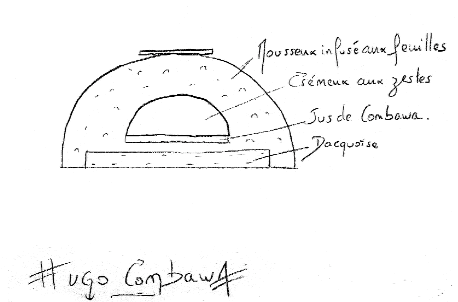 Mousseux infusé aux feuilles
Crémeux aux zestes
Jus de Combawa.
Dacquoise
Hugo CombawA